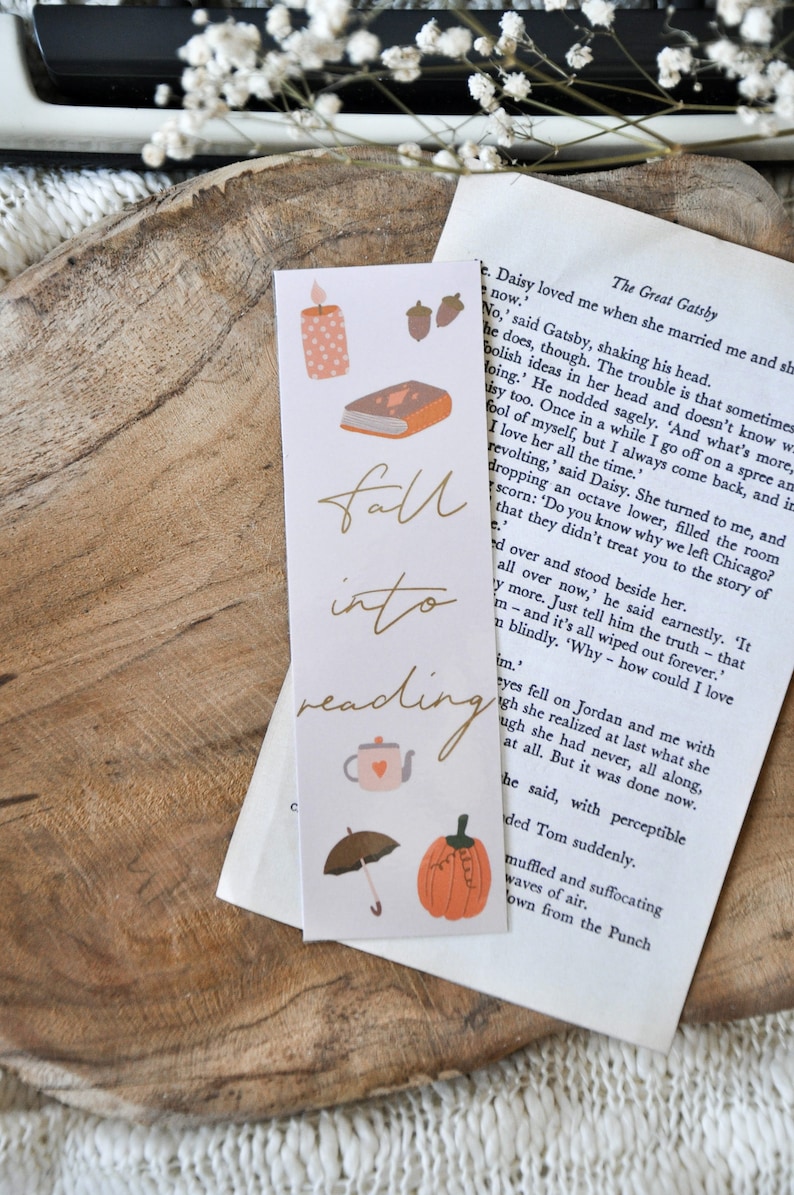 fall
into
reading
The Great Gatsby
e. Daisy loved me when she married me and sh
now.'
No,' said Gatsby, shaking his head.
he does, though. The trouble is that sometimes
foolish ideas in her head and doesn't know w
doing.' He nodded sagely. 'And what's more,
isy too. Once in a while I go off on a spree an
fool of myself, but I always come back, and in
I love her all the time.'
revolting,' said Daisy. She turned to me, and
dropping an octave lower, filled the room
scorn: 'Do you know why we left Chicago?
that they didn't treat you to the story of
e.'
ed over and stood beside her.
all over now,' he said earnestly. 'It
y more. Just tell him the truth – that
m – and it's all wiped out forever.'
m blindly. 'Why – how could I love
im.'
eyes fell on Jordan and me with
ugh she realized at last what she
ugh she had never, all along,
at all. But it was done now.
she said, with perceptible
nded Tom suddenly.
muffled and suffocating
waves of air.
down from the Punch